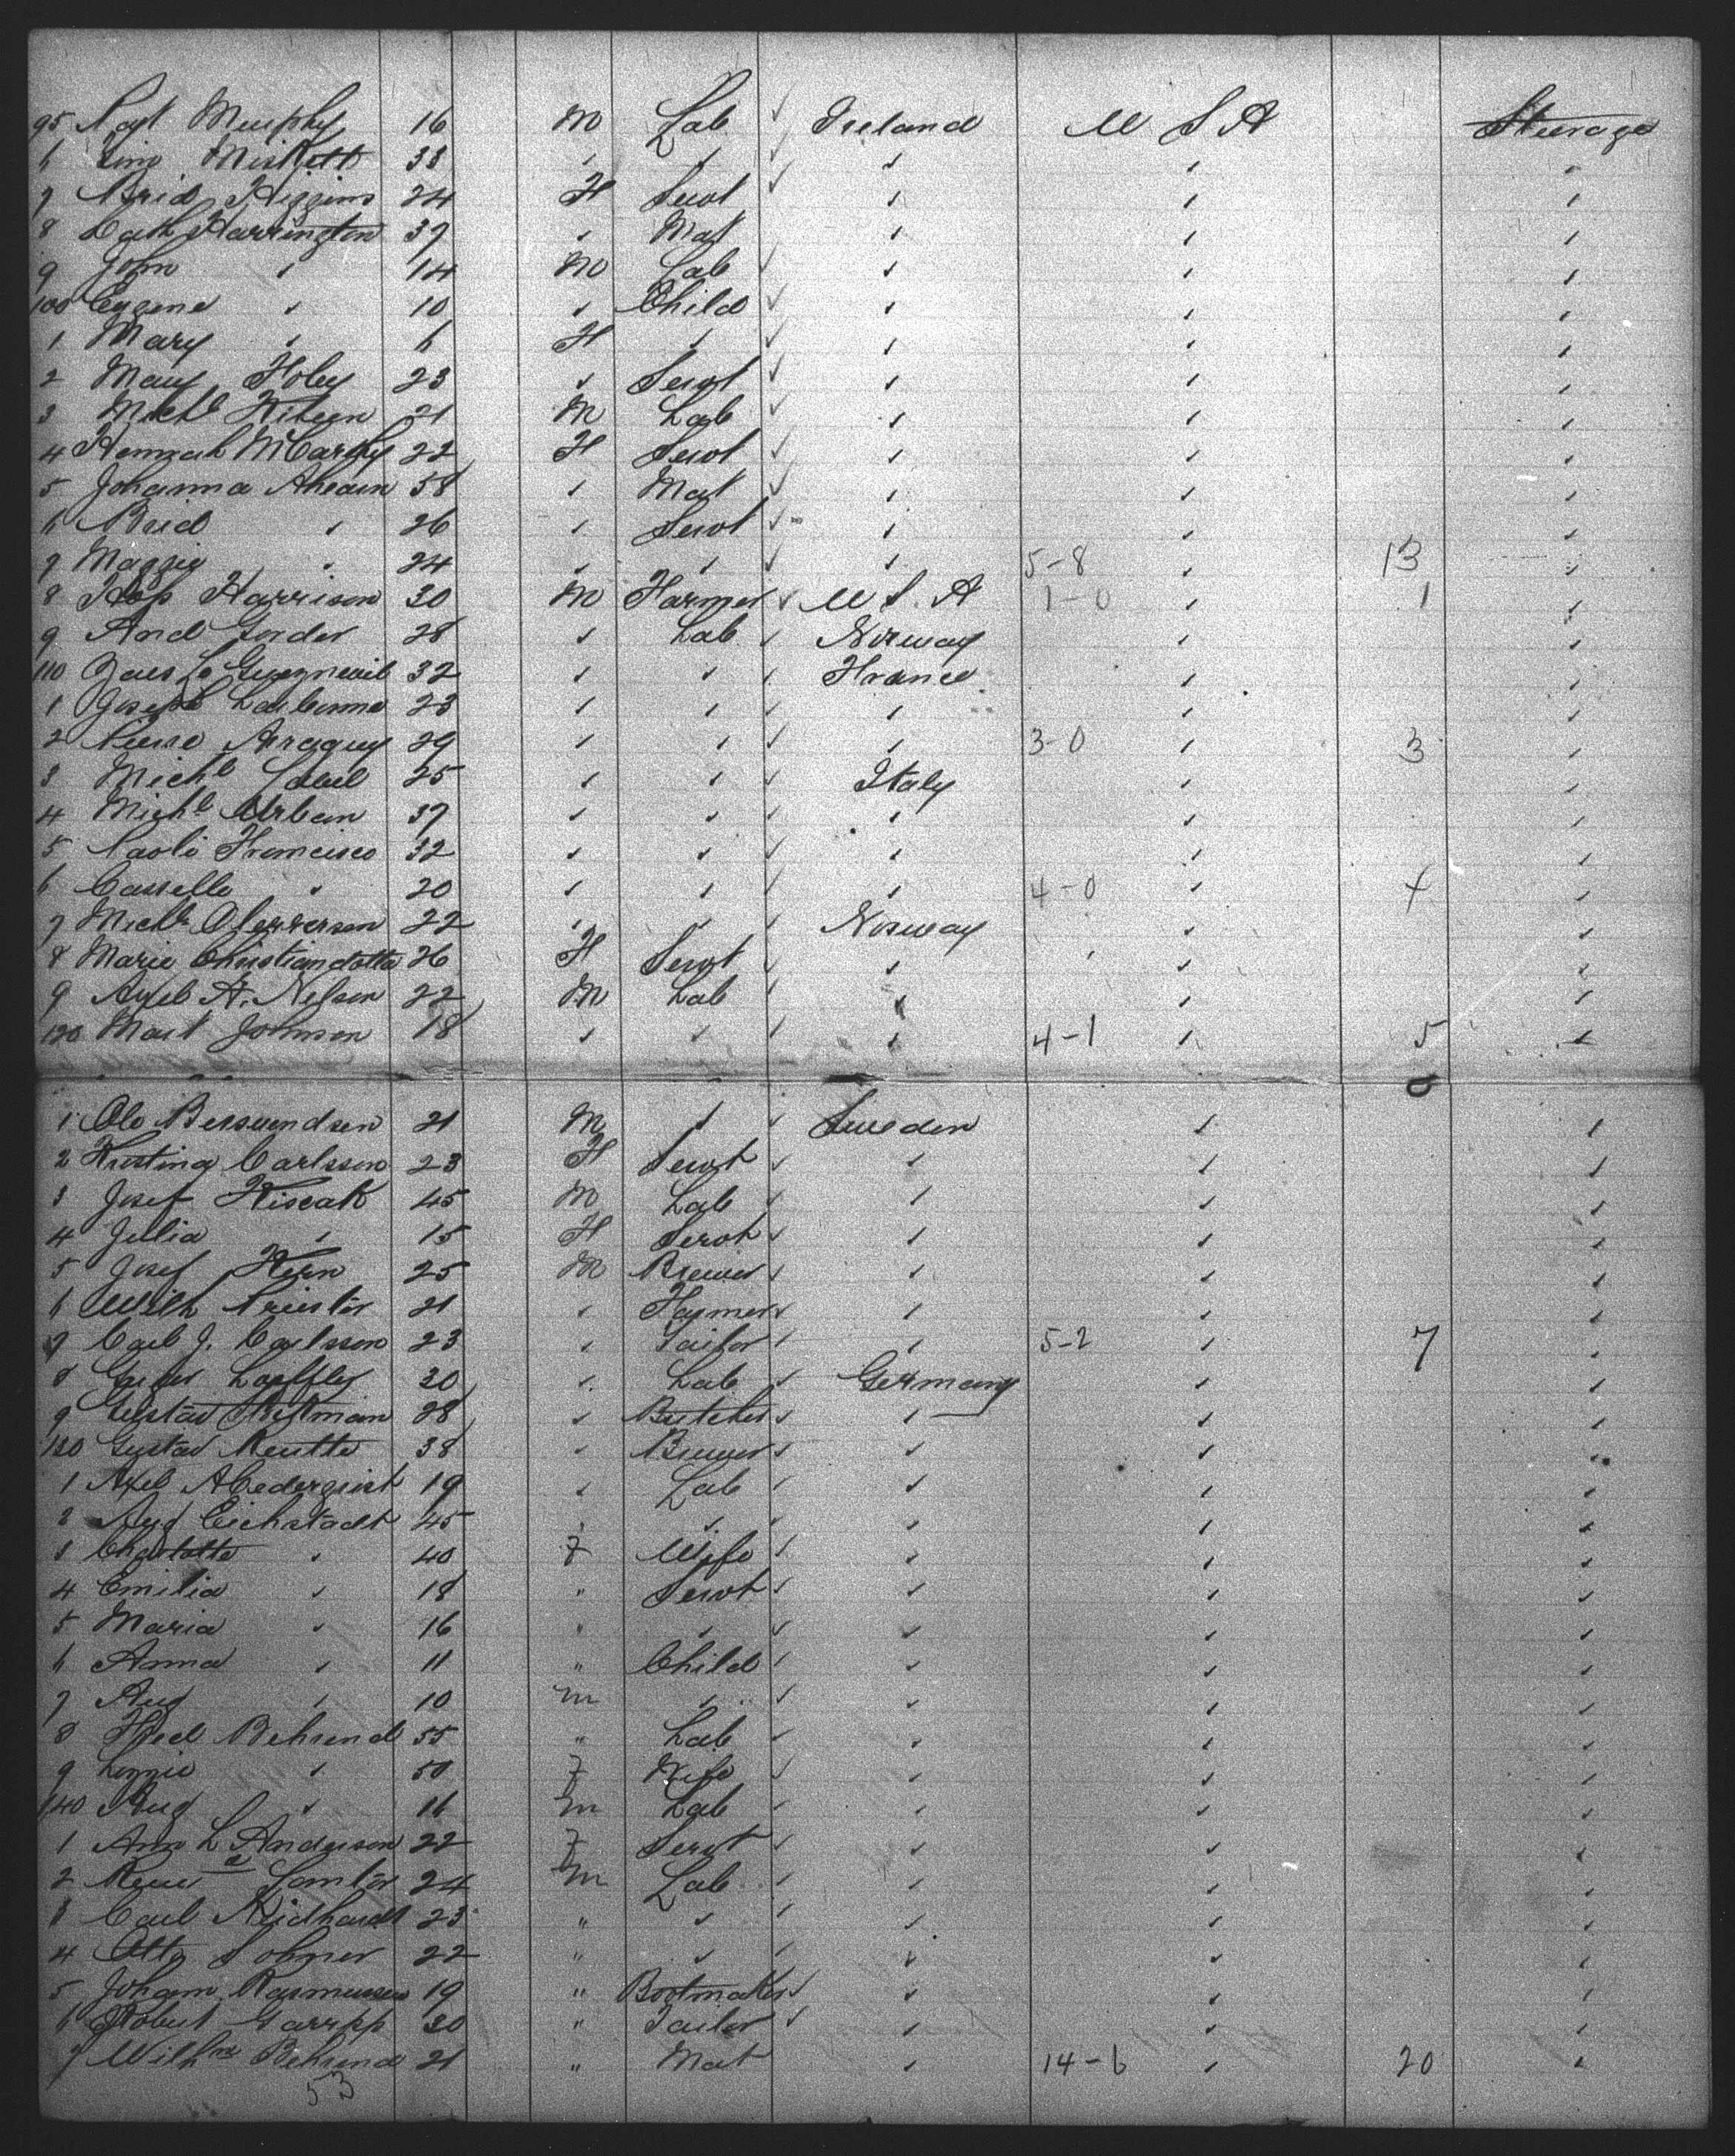 95 Pat Murphy 16 M Lab ✓ Ireland U S A Steerage
6 Miskell 33 ✓ ✓ ✓ ✓ ✓ ✓
7 Brid Higgins 24 F Servt ✓ ✓ ✓ ✓
8 Cath Harrington 37 ✓ Mat ✓ ✓ ✓
9 John ✓ 14 M Lab ✓ ✓ ✓ ✓
100 Eugene ✓ 10 ✓ Child ✓ ✓ ✓ ✓
1 Mary ✓ 6 F ✓ ✓ ✓ ✓ ✓
2 Mary Foley 23 ✓ Servt ✓ ✓ ✓ ✓
3 Michl Kileen 21 M Lab ✓ ✓ ✓ ✓
4 Hannah McCarthy 22 F Servt ✓ ✓ ✓ ✓
5 Johanna Ahearn 58 ✓ Mat ✓ ✓ ✓ ✓
6 Brid ✓ 26 ✓ Servt ✓ ✓ ✓ ✓
7 Maggie ✓ 24 ✓ ✓ ✓ ✓ 5-8 ✓ 13 ✓
8 Harrison 30 M Farmer ✓ U S. A 1-0 ✓ 1 ✓
9 And Gorder 28 ✓ Lab ✓ Norway ✓ ✓
110 32 ✓ ✓ ✓ France ✓ ✓
1 Joseph 23 ✓ ✓ ✓ ✓ ✓ ✓
2 Pierre Arraguy 29 ✓ ✓ ✓ ✓ 3-0 ✓ 3 ✓
3 Michl 25 ✓ ✓ ✓ Italy ✓ ✓
4 Michl Urban 37 ✓ ✓ ✓ ✓ ✓ ✓
5 Paoli Francisco 32 ✓ ✓ ✓ ✓ ✓ ✓
6 Cassello ✓ 20 ✓ ✓ ✓ ✓ 4-0 ✓ 4 ✓
7 22 ✓ ✓ ✓ Norway ✓ ✓
8 Marie Christiandotter 26 F Servt ✓ ✓ ✓ ✓
9 Axel A. Nelson 22 M Lab ✓ ✓ ✓ ✓
120 Mart Johnson 18 ✓ ✓ ✓ ✓ 4-1 ✓ 5 ✓
1 Ole Bersvendsen 21 M ✓ ✓ Sweden ✓ ✓
2 Kristina Carlsson 23 F Servt ✓ ✓ ✓ ✓
3 Josef Kiscak 45 M Lab ✓ ✓ ✓ ✓
4 Julia ✓ 15 F Servt ✓ ✓ ✓ ✓
5 Josef Kern 25 M Brewer ✓ ✓ ✓ ✓
6 Wilh Priester 21 ✓ Farmer ✓ ✓ ✓ ✓
7 Carl J. Carlsson 23 ✓ Tailor ✓ ✓ 5-2 ✓ 7 ✓
8 Loeffler 30 ✓ Lab ✓ Germany ✓ ✓
9 Gustav 28 ✓ Butcher ✓ ✓ ✓ ✓
130 Gustav Reutte 38 ✓ Brewer ✓ ✓ ✓ ✓
1 Axel A Cederquist 19 ✓ Lab ✓ ✓ ✓ ✓
2 Aug Eichstadt 45 ✓ ✓ ✓ ✓ ✓ ✓
3 Charlotte ✓ 40 F Wife ✓ ✓ ✓ ✓
4 Emilia ✓ 18 " Servt ✓ ✓ ✓ ✓
5 Maria ✓ 16 " ✓ ✓ ✓ ✓ ✓
6 Anna ✓ 11 " Child ✓ ✓ ✓ ✓
7 Aug ✓ 10 m ✓ ✓ ✓ ✓ ✓
8 Fred Behrend 55 " Lab ✓ ✓ ✓ ✓
9 Lizzie ✓ 50 F Wife ✓ ✓ ✓ ✓
140 Aug ✓ 16 m Lab ✓ ✓ ✓ ✓
1 Ann L Anderson 22 F Servt ✓ ✓ ✓ ✓
2 24 m Lab ✓ ✓ ✓ ✓
3 Carl Neidhardt 23 " ✓ ✓ ✓ ✓ ✓
4 Otto Sohmer 22 " ✓ ✓ ✓ ✓ ✓
5 Johann Rasmussen 19 " Bootmaker ✓ ✓ ✓ ✓
6 Robert 30 " Tailor ✓ ✓ ✓ ✓
7 Wilhm Behrend 21 " Mat ✓ 14-6 ✓ 20 ✓
53